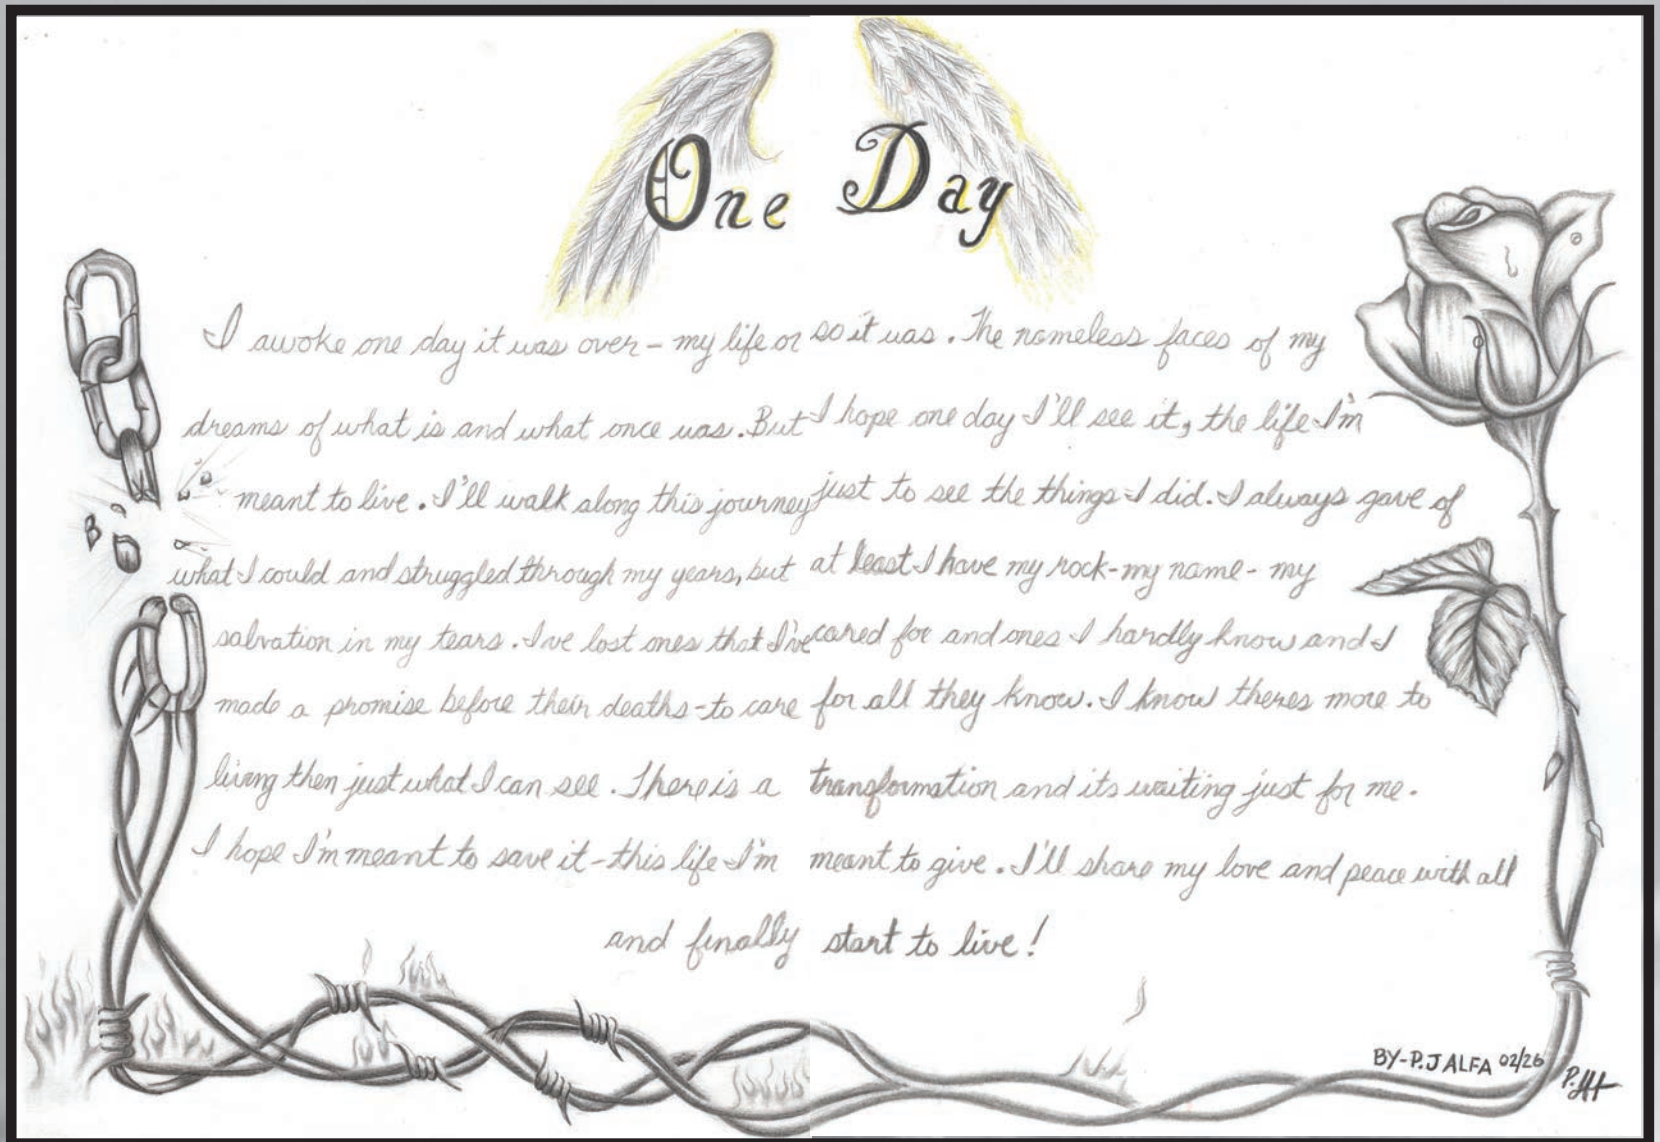 One Day
I awoke one day it was over - my life or so it was. The nameless faces of my
dreams of what is and what once was. But I hope one day I'll see it, the life I'm
meant to live. I'll walk along this journey just to see the things I did. I always gave of
what I could and struggled through my years, but at least I have my rock-my name- my
salvation in my tears. I've lost ones that I've cared for and ones I hardly know and I
made a promise before their deaths-to care for all they know. I know theres more to
living then just what I can see. There is a transformation and its waiting just for me.
I hope I'm meant to save it-this life I'm meant to give. I'll share my love and peace with all
and finally start to live!
BY-P.J ALFA 02/26